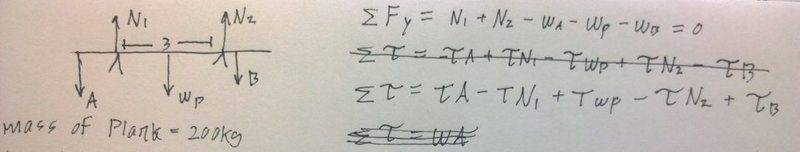 N1 N2
3
A Wp B
mass of Plank = 200kg
ΣFy = N1 + N2 - WA - Wp - WB = 0
Στ = -τA + τN1 - τwp + τN2 - τB
Στ = τA - τN1 + τwp - τN2 + τB
Στ = WA